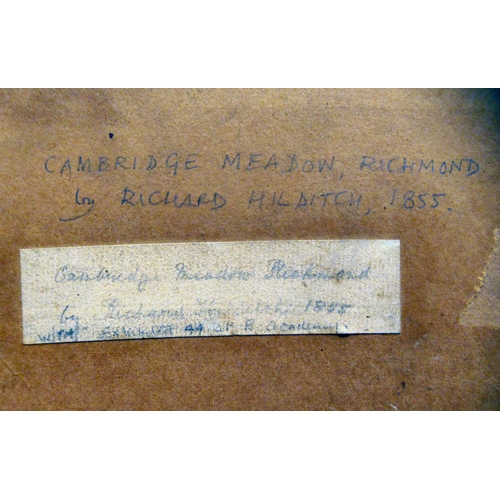 CAMBRIDGE MEADOW, RICHMOND
by RICHARD HILDITCH, 1855.
Cambridge Meadow Richmond
by Richard Hilditch 1855
Exhibited 44 at R Academy